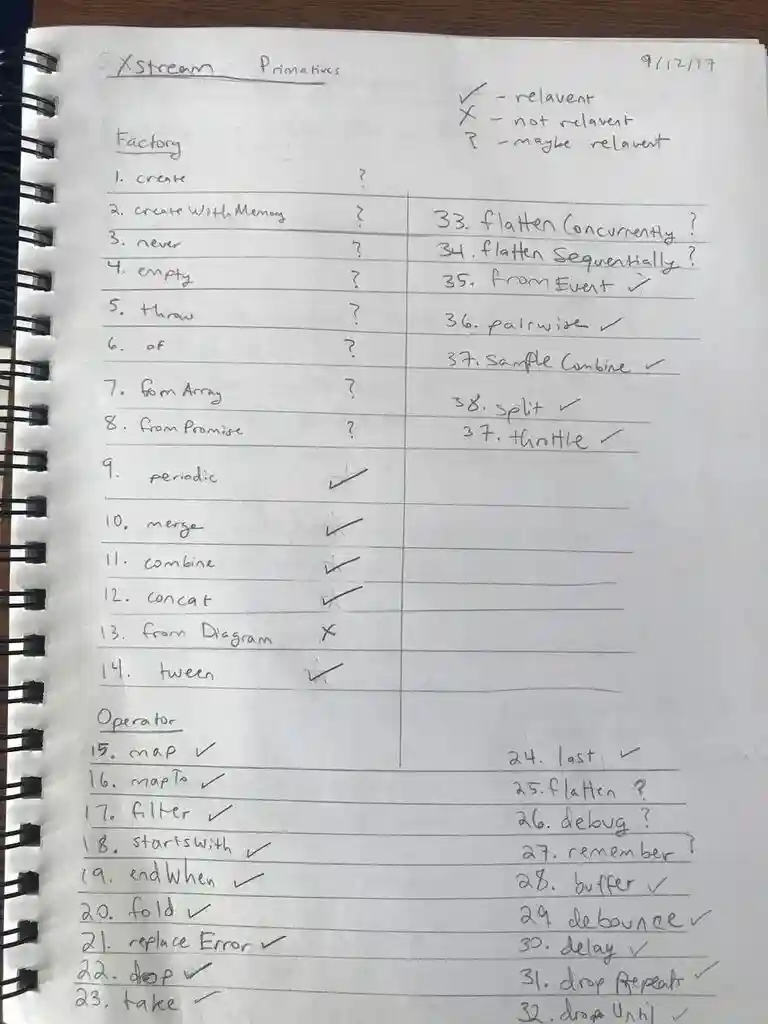 Xstream Primatives
9/12/17
✓ - relavent
X - not relavent
? - maybe relavent
Factory
1. create ?
2. createWithMemory ?
3. never ?
4. empty ?
5. throw ?
6. of ?
7. fromArray ?
8. fromPromise ?
9. periodic ✓
10. merge ✓
11. combine ✓
12. concat ✓
13. from Diagram X
14. tween ✓
33. flatten Concurrently ?
34. flatten Sequentially ?
35. fromEvent ✓
36. pairwise ✓
37. sample Combine ✓
38. split ✓
37. throttle ✓
Operator
15. map ✓
16. mapTo ✓
17. filter ✓
18. startswith ✓
19. endWhen ✓
20. fold ✓
21. replace Error ✓
22. drop ✓
23. take ✓
24. last ✓
25. flatten ?
26. debug ?
27. remember ?
28. buffer ✓
29 debounce ✓
30. delay ✓
31. drop Repeats ✓
32. drop Until ✓